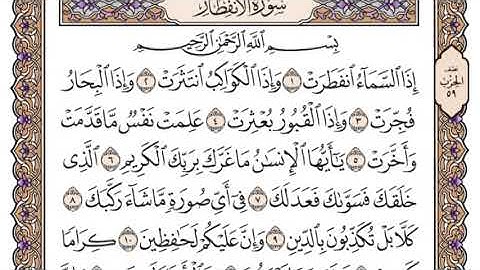 سُورَةُ الِانفِطَارِ
بِسْمِ ٱللَّهِ ٱلرَّحْمَٰنِ ٱلرَّحِيمِ
إِذَا ٱلسَّمَآءُ ٱنفَطَرَتْ ١ وَإِذَا ٱلْكَوَاكِبُ ٱنتَثَرَتْ ٢ وَإِذَا ٱلْبِحَارُ
فُجِّرَتْ ٣ وَإِذَا ٱلْقُبُورُ بُعْثِرَتْ ٤ عَلِمَتْ نَفْسٌ مَّا قَدَّمَتْ
وَأَخَّرَتْ ٥ يَٰٓأَيُّهَا ٱلْإِنسَٰنُ مَا غَرَّكَ بِرَبِّكَ ٱلْكَرِيمِ ٦ ٱلَّذِى
خَلَقَكَ فَسَوَّىٰكَ فَعَدَلَكَ ٧ فِىٓ أَىِّ صُورَةٍ مَّا شَآءَ رَكَّبَكَ ٨
كَلَّا بَلْ تُكَذِّبُونَ بِٱلدِّينِ ٩ وَإِنَّ عَلَيْكُمْ لَحَٰفِظِينَ ١٠ كِرَامًا
نصف
الحزب
٥٩